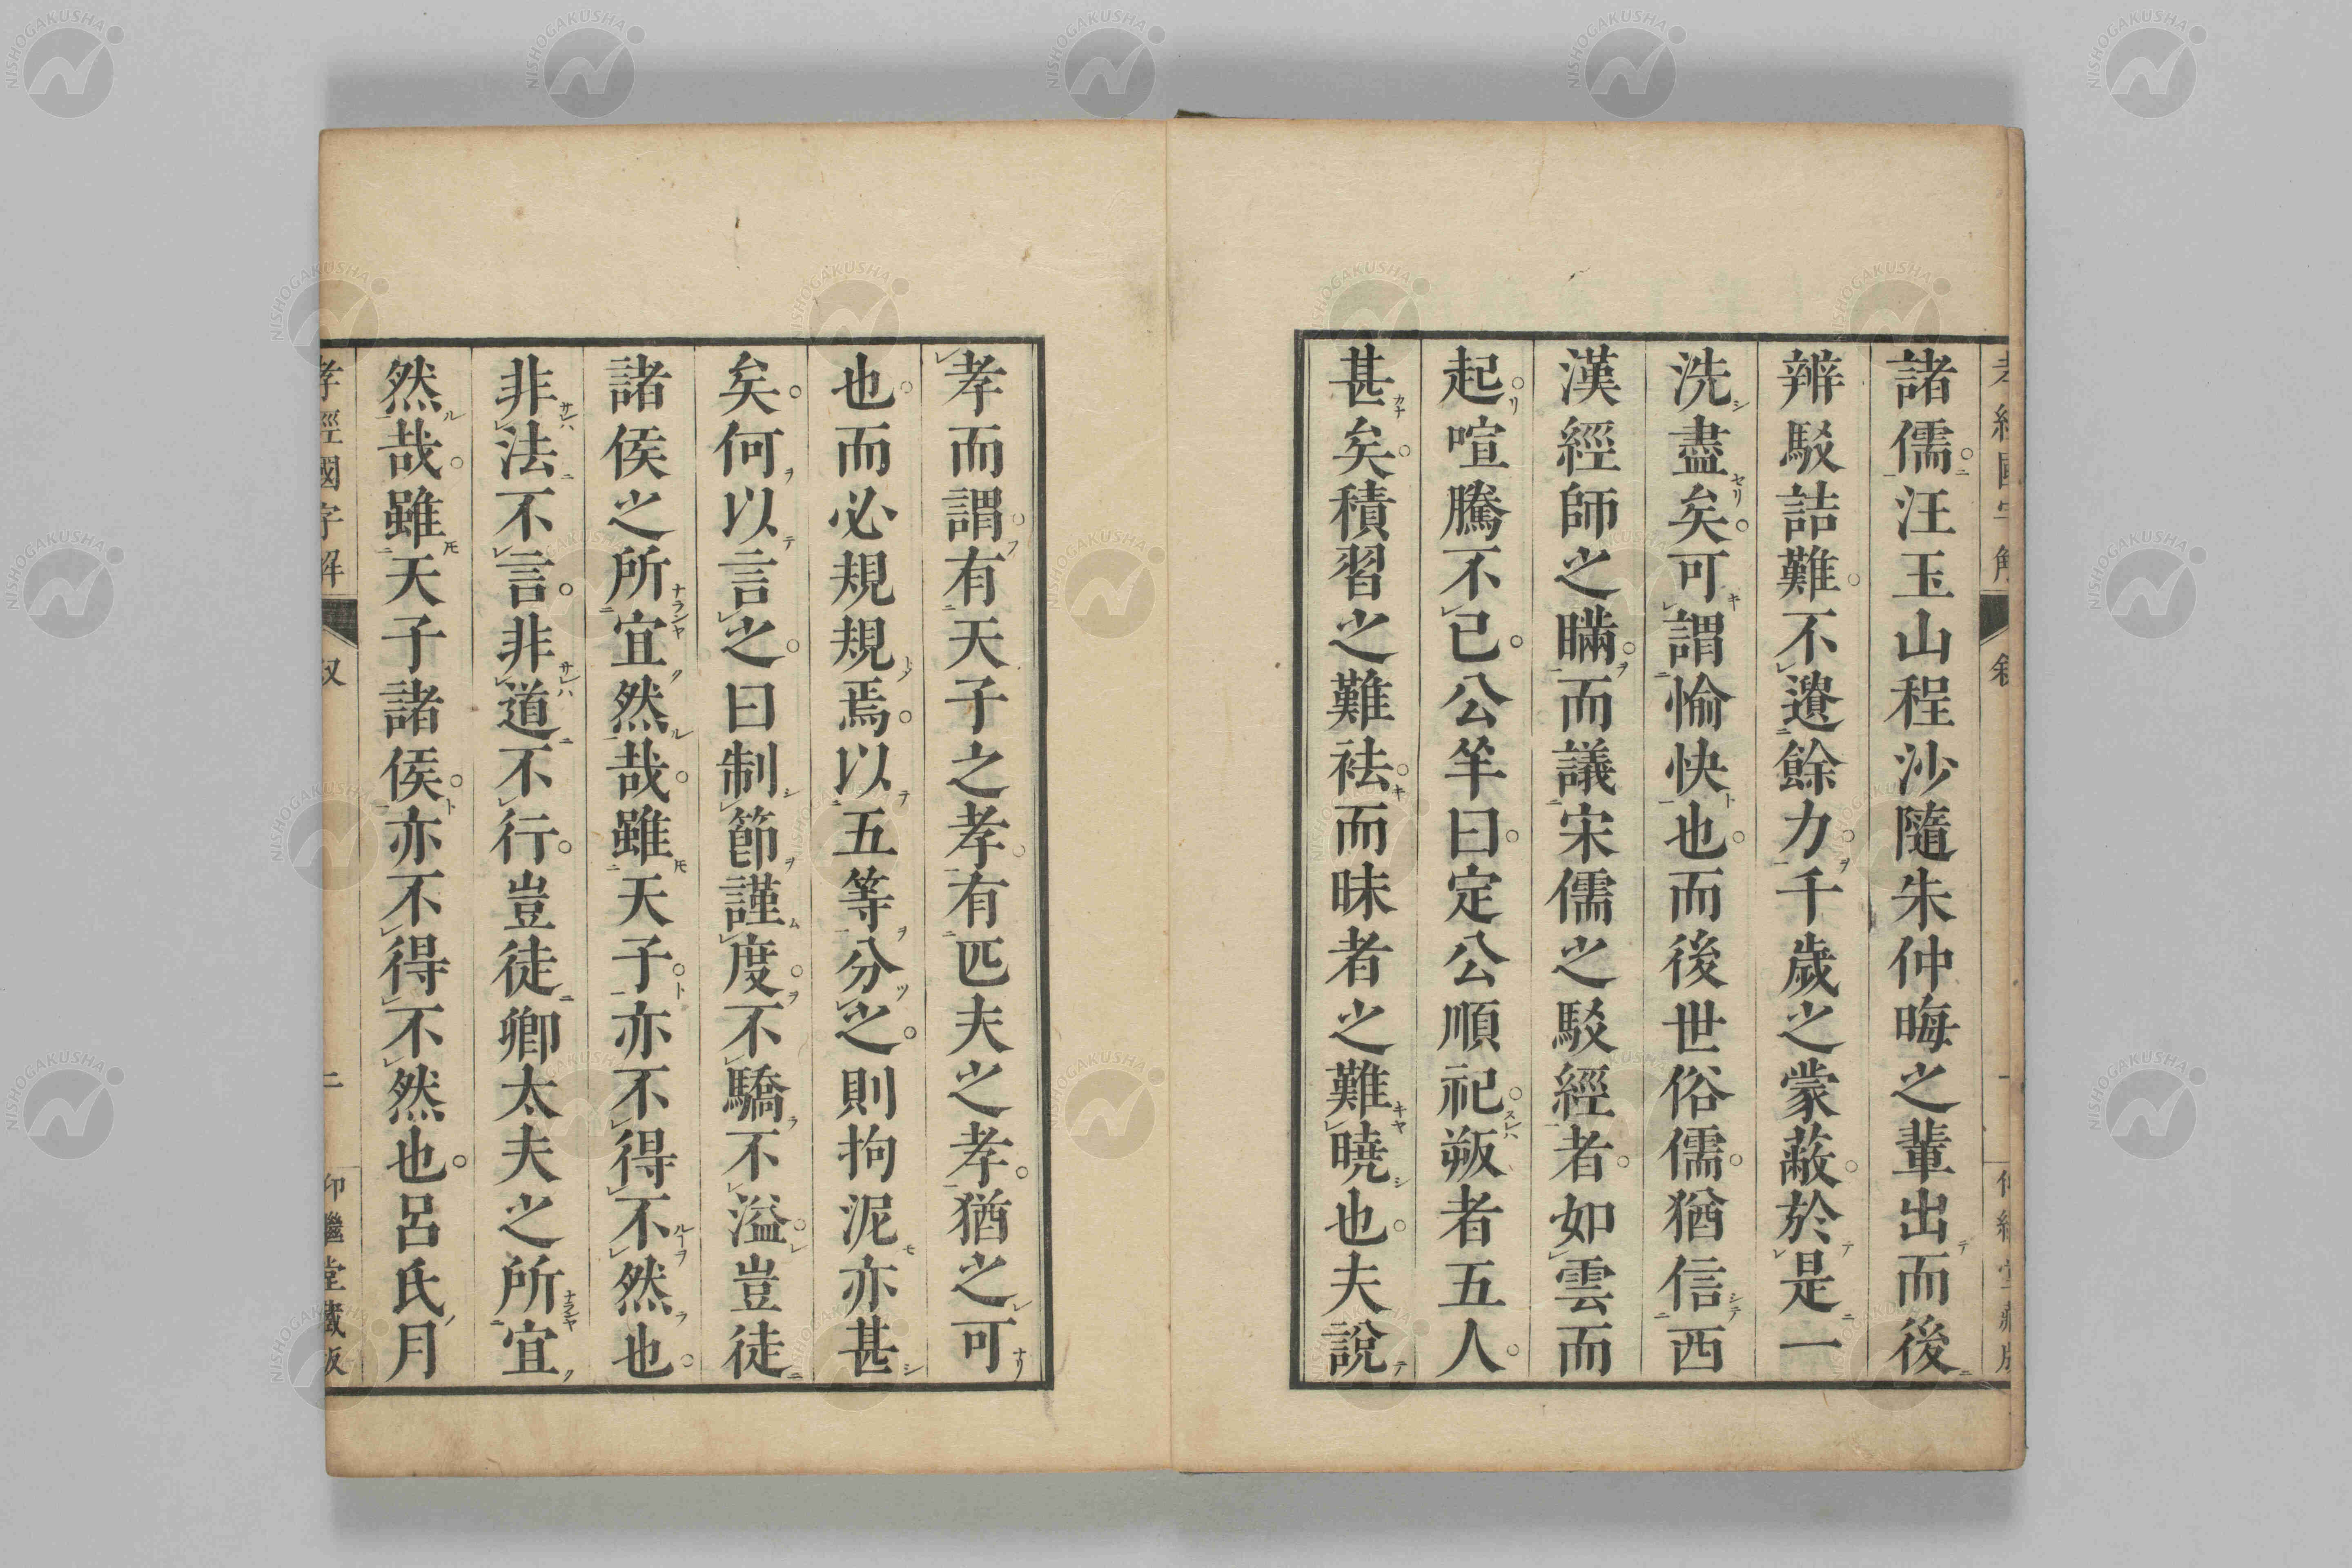 諸儒汪玉山程沙隨朱仲晦之輩出而後
辨駁詰難不遺餘力千歲之蒙蔽於是一
洗盡矣可謂愉快也而後世俗儒猶信西
漢經師之瞞而議宋儒之駁經者如雲而
起喧騰不已公羊曰定公順祀叛者五人
甚矣積習之難袪而昧者之難曉也夫說
孝而謂有天子之孝有匹夫之孝猶之可
也而必規規焉以五等分之則拘泥亦甚
矣何以言之曰制節謹度不驕不溢豈徒
諸侯之所宜然哉雖天子亦不得不然也
非法不言非道不行豈徒卿太夫之所宜
然哉雖天子諸侯亦不得不然也呂氏月
孝經國字解 叙 二
NISHOGAKUSHA